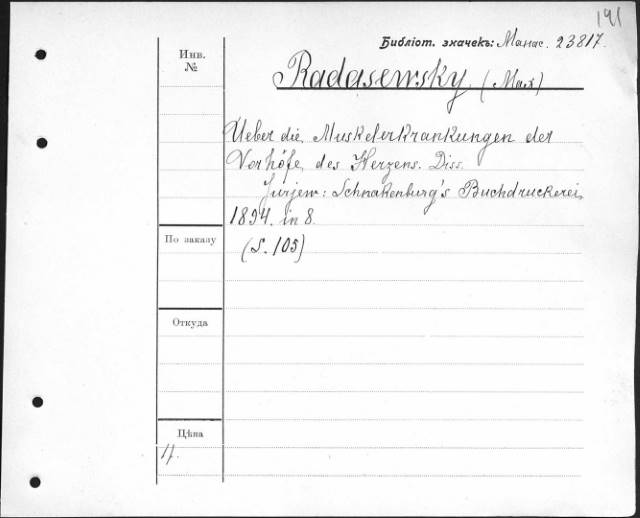 191
Библіот. значекъ: Манас. 23817.
Инв.
№
Radasewsky (Max)
Ueber die Muskelerkrankungen der
Vorhöfe des Herzens. Diss.
Jurjew: Schnakenburg's Buchdruckerei,
1894. in 8.
По заказу
(S. 105)
Откуда
Цѣна